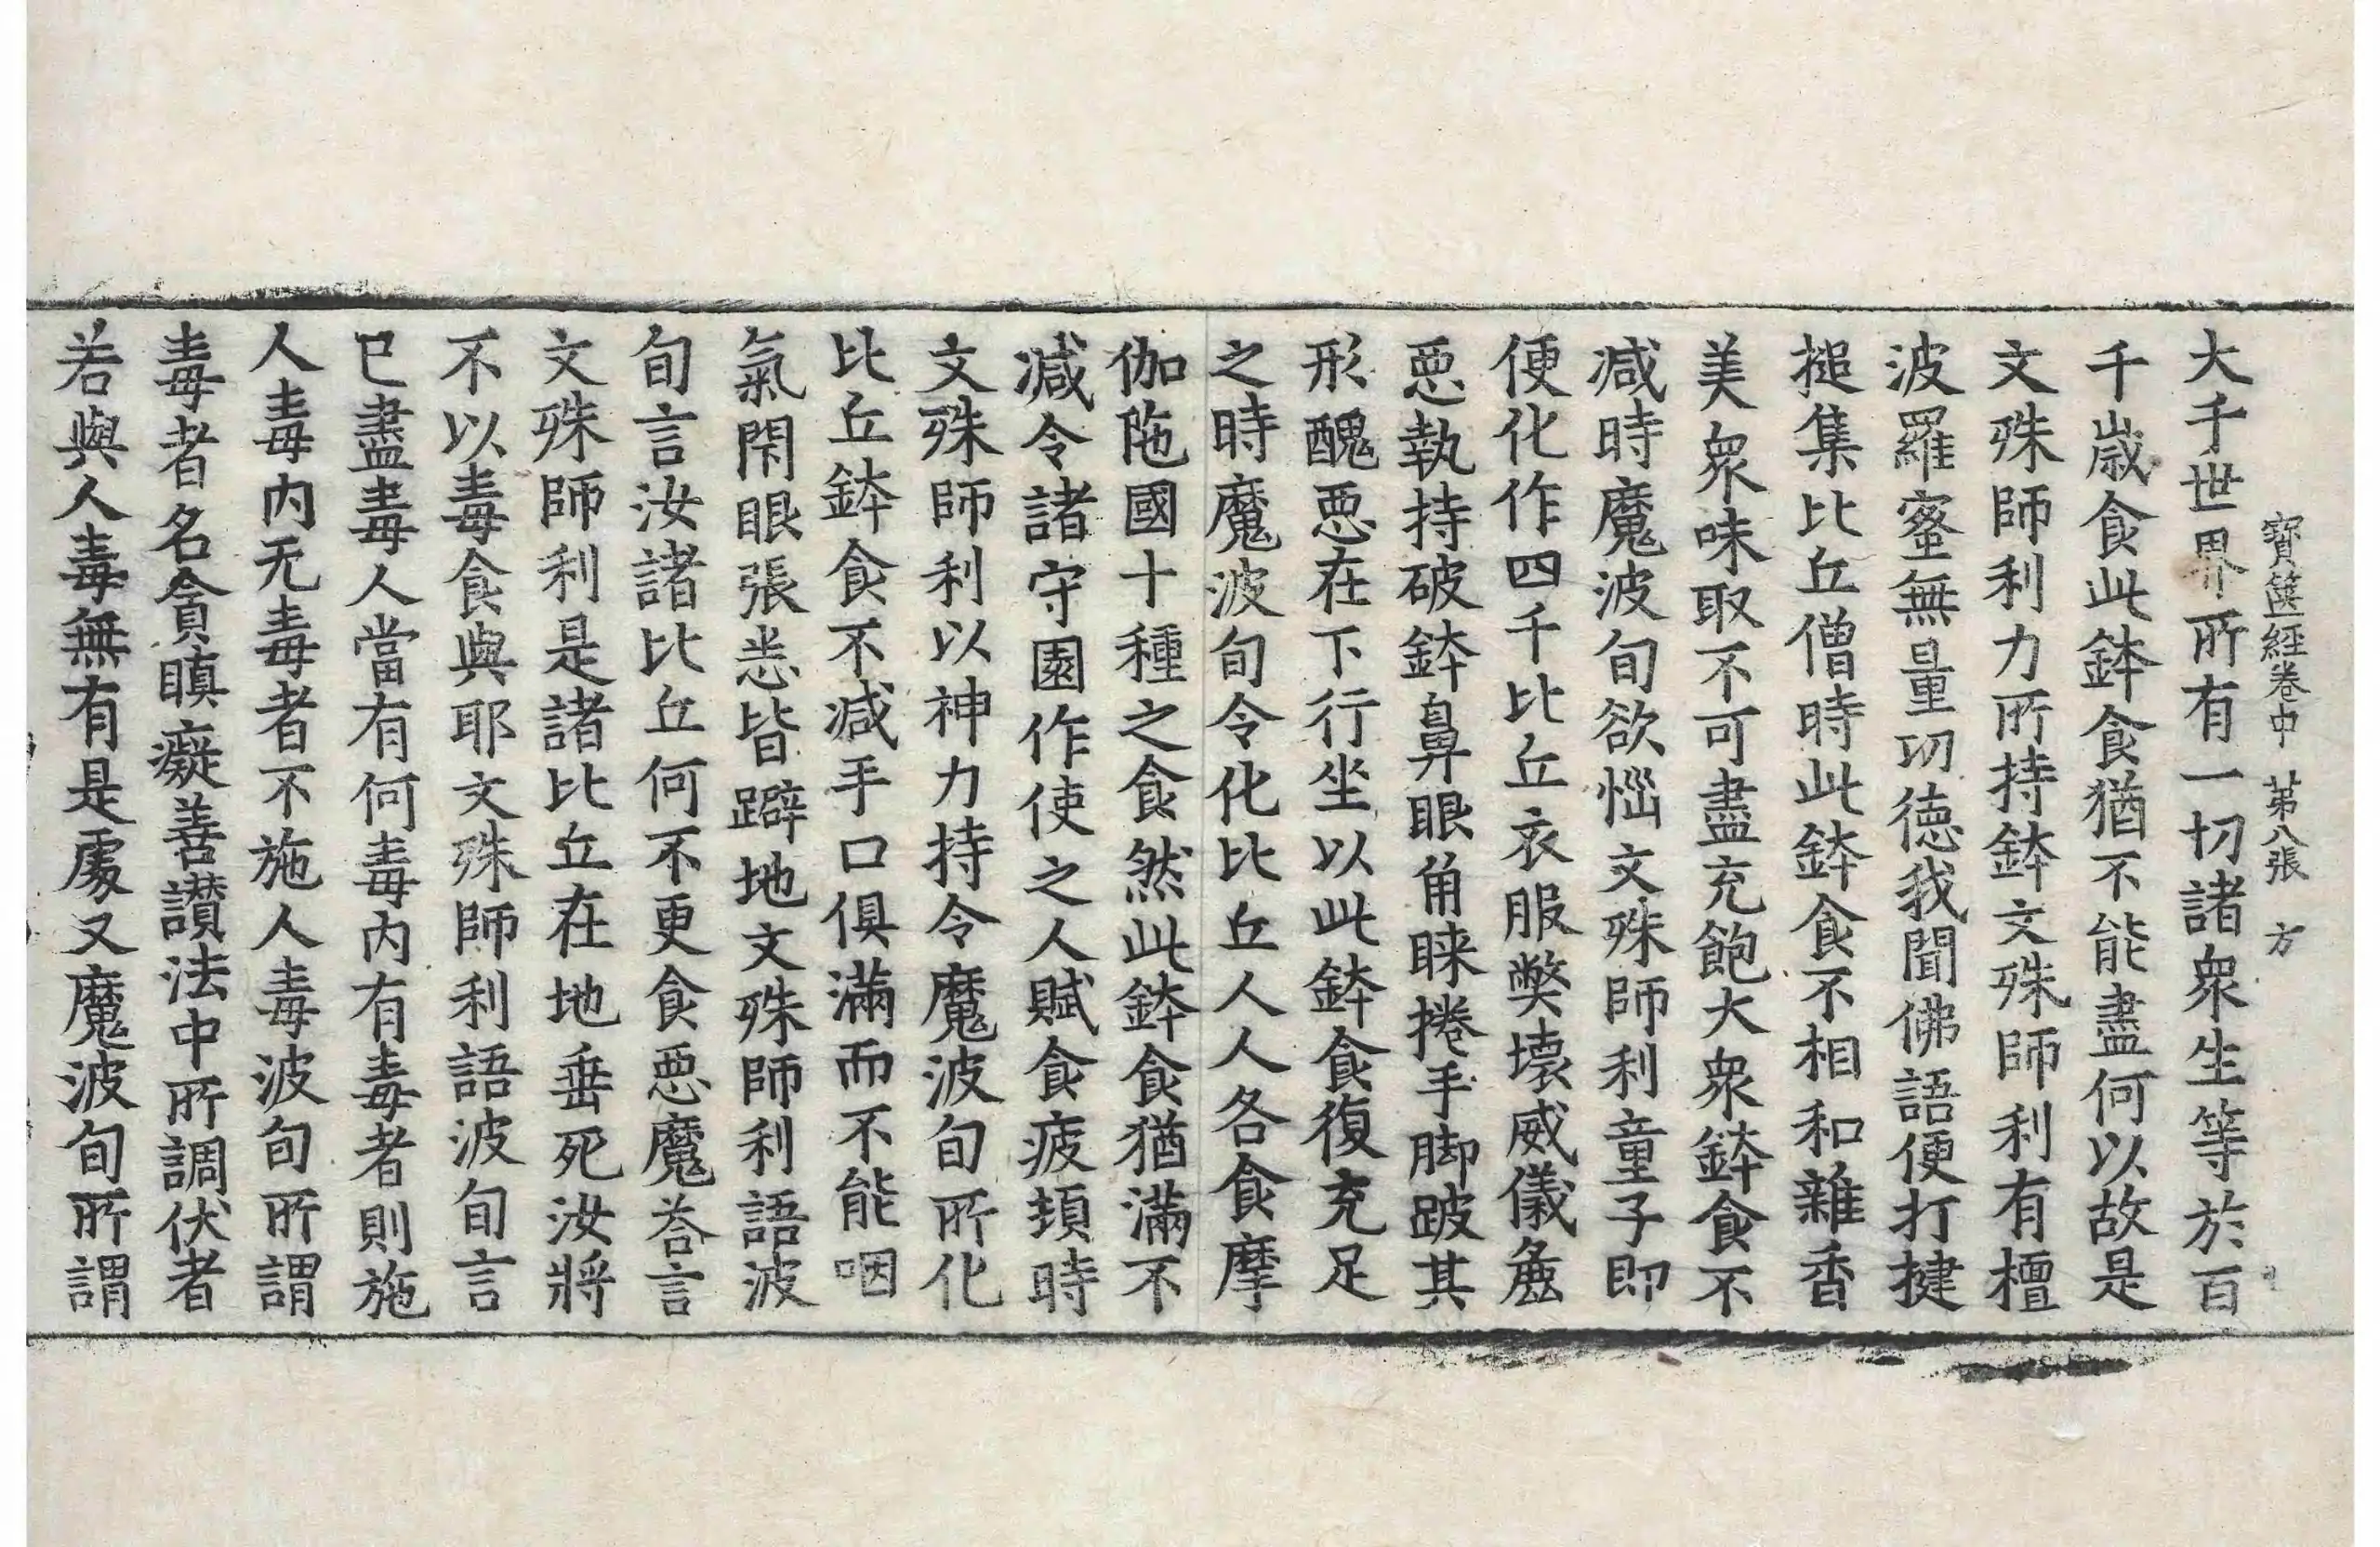 寶篋經卷中 苐八張 方
大千世界所有一切諸衆生等於百
千歲食此鉢食猶不能盡何以故是
文殊師利力所持鉢文殊師利有檀
波羅蜜無量㓛徳我聞佛語便打揵
搥集比丘僧時此鉢食不相和雜香
美衆味取不可盡充飽大衆鉢食不
减時魔波旬欲惱文殊師利童子即
便化作四千比丘衣服弊壞威儀麁
惡執持破鉢鼻眼角睞捲手脚跛其
形醜惡在下行坐以此鉢食復充足
之時魔波旬令化比丘人人各食摩
伽陁國十種之食然此鉢食猶滿不
减令諸守園作使之人賦食疲頓時
文殊師利以神力持令魔波旬所化
比丘鉢食不减手口俱滿而不能咽
氣閇眼張悉皆躃地文殊師利語波
旬言汝諸比丘何不更食惡魔荅言
文殊師利是諸比丘在地垂死汝將
不以毒食與耶文殊師利語波旬言
已盡毒人當有何毒内有毒者則施
人毒内无毒者不施人毒波旬所謂
毒者名貪瞋癡善讃法中所調伏者
若與人毒無有是處又魔波旬所謂